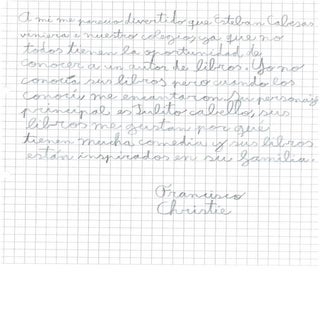 A mi me parecio divertido que Esteban Cabezas
viniera a nuestro colegio, ya que no
todos tienen la oportunidad de
conocer a un autor de libros. Yo no
conocía sus libros pero cuando los
conocí me encantaron. Su personaje
principal es Julito cabello, sus
libros me gustan por que
tienen mucha comedia y sus libros
están inspirados en su familia.
Francisco
Christie